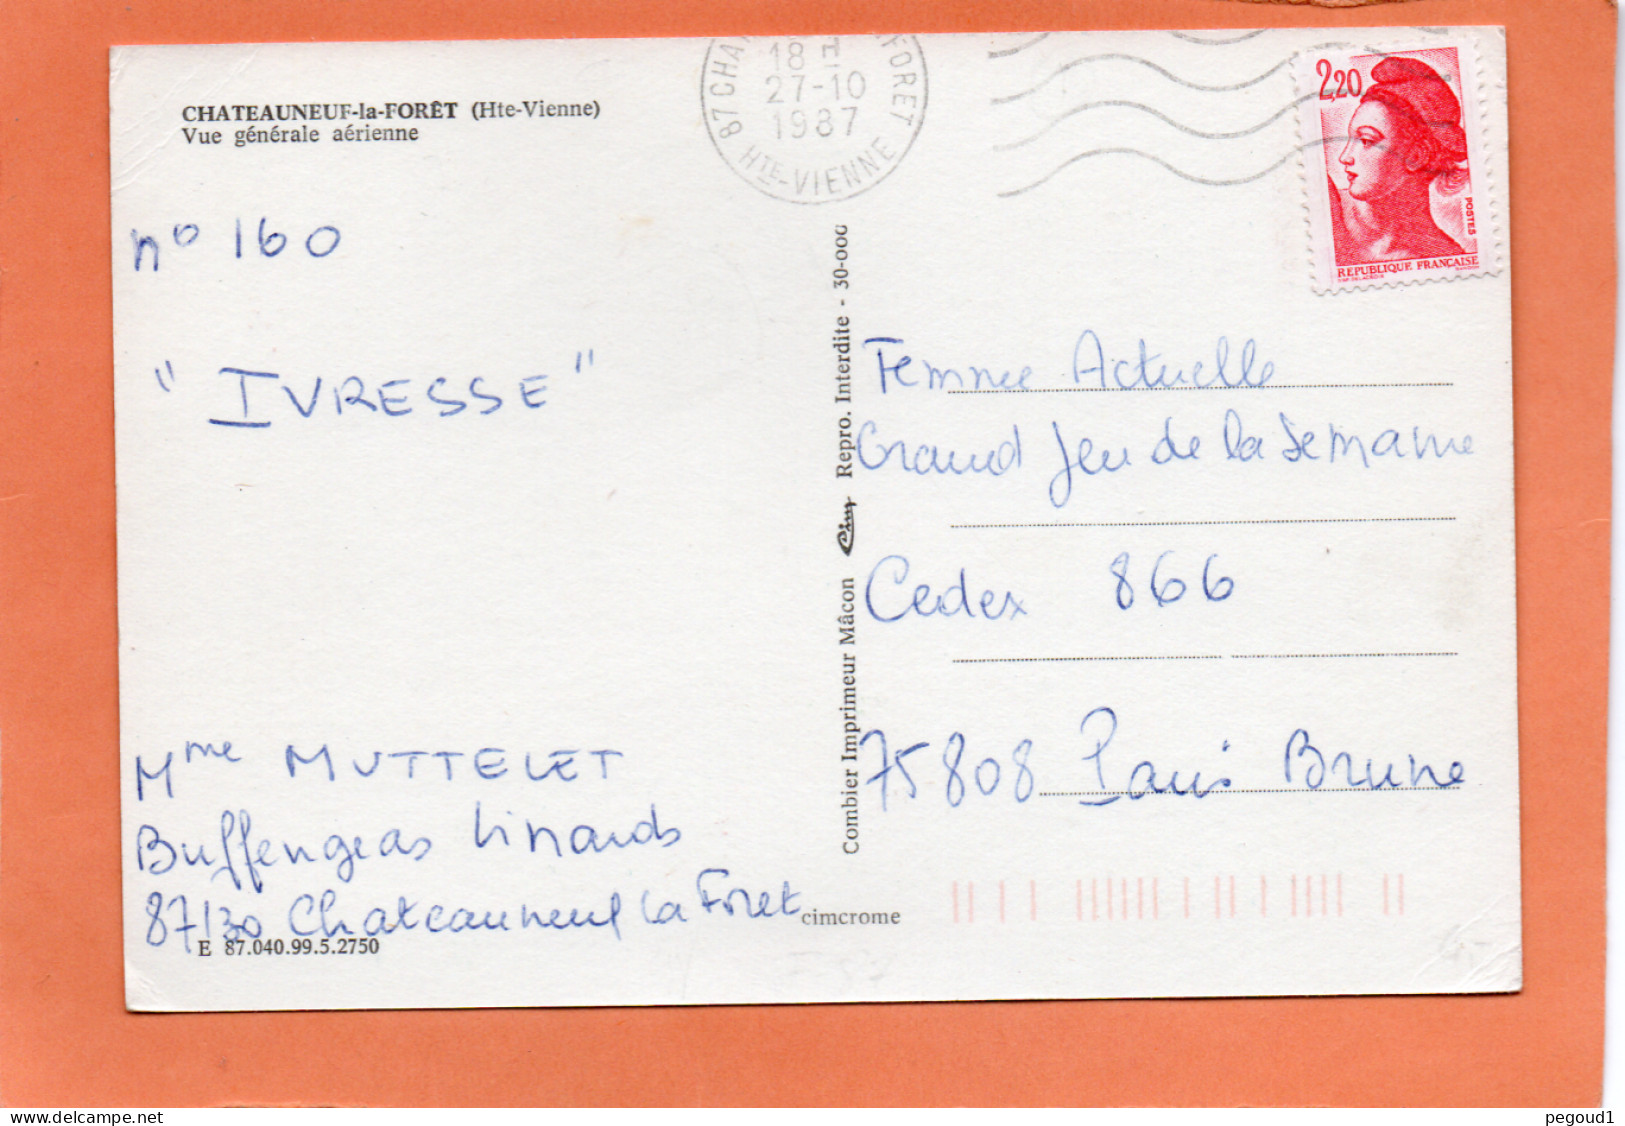 CHATEAUNEUF-la-FORÊT (Hte-Vienne)
Vue générale aérienne
18
27-10
1987
87 CHA FORET
HTE-VIENNE
2,20
POSTES
REPUBLIQUE FRANÇAISE
n° 160
" IVRESSE "
Mme MUTTELET
Buffengeas Linards
87130 Chateauneuf la Foret
E 87.040.99.5.2750
cimcrome
Combier Imprimeur Mâcon Cim Repro. Interdite - 30-000
Femme Actuelle
Grand Jeu de la Semaine
Cedex 866
75808 Paris Brune
www.delcampe.net
pegoud1